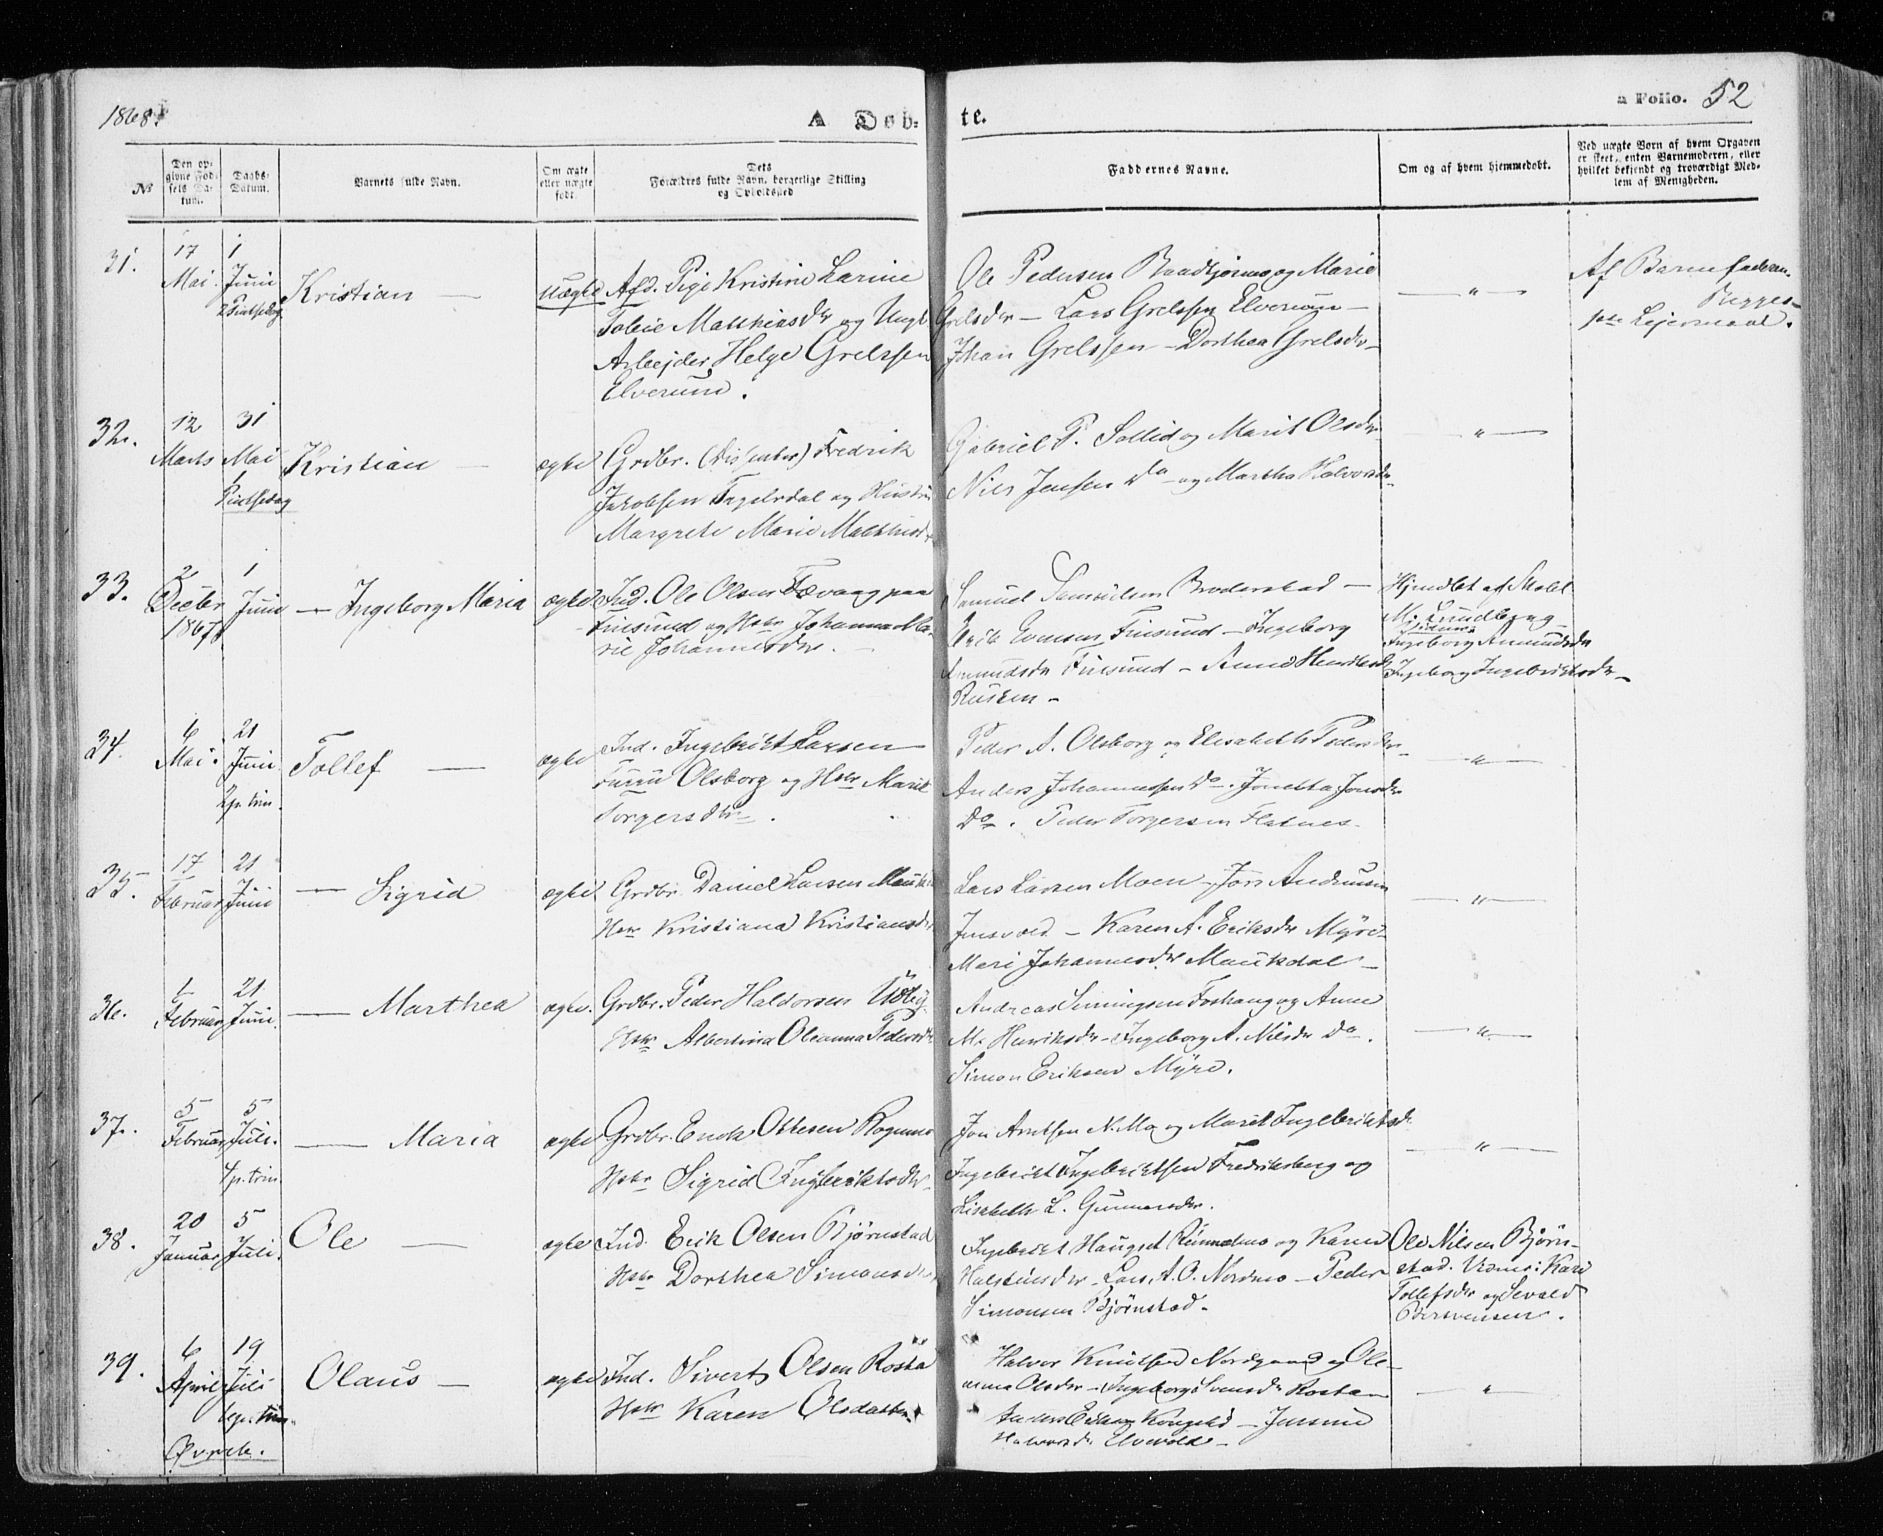 1868.
A Døb-
te.
a Folio. 52
No
Den opgivne Fødsels Datum.
Daabs-Datum.
Barnets fulde Navn.
Om ægte eller uægte født.
Dets Forældres fulde Navn, borgerlige Stilling og Opholdssted
Faddernes Navne.
Om og af hvem hjemmedøbt.
Ved uægte Børn af hvem Opgaven er skeet, enten Barnemoderen, eller hvilket bekjendt og troværdigt Medlem af Menigheden.
31.
17 Mai.
1 Juni
2 Pintsedag
Kristian
uægte
Afd. Pige Kristine Larine
Tobie Matthiasdr og Ungk
Arbejder Helge Grelssen
Elverum.
Ole Pedersen og Marie
Grelsdr — Lars Grelssen Elverum —
Johan Grelssen — Dorthea Grelsdr —
— " —
Af Barnefaderen.
Begges
1ste Lejermaal.
32.
12 Marts
31 Mai
1 Pintsedag
Kristian
ægte
Grdbr. (Dissenter) Fredrik
Jakobsen og Hustru
Margrete Marie Matthisdr
Gabriel P. Sollid og Marit Olsdr
Nils Jensen Do — og Martha Halvorsdr
— " —
33.
2 Decbr 1867
1 Juni
— Ingeborg Maria
ægte
Ind. Ole Olsen Fævang paa
Finsund og Hstr Johanna Ma-
rie Johannesdr. —
Samuel Samuelsen Broderstad —
Erik Evensen Finsund — Ingeborg
Amundsdr Finsund — Anne Henriksdr
Rusken —
Hjemdbt af Skoll.
M. Lundberg
Ingeborg Amundsdr
Ingeborg Ingebrigtsdr —
34.
6 Mai.
21 Juni
2 p. trin.
Tollef
ægte
Ind. Ingebrikt Larsen
Furru Olsborg og Hstr Marit
Torgersdtr.
Peder A. Olsborg og Elisabeth Pedersdr —
Anders Johannessen Do. Jonetta Jonsdr
Do. Peder Torgersen Flatnes.
— " —
35.
17 Februar
21 Juni
— Sigrid
ægte.
Grdbr. Daniel Larsen
Hstr Kristiana Kristiansdr
Lars Larsen Moen — Jørs Andreassen
Jensvold — Karen A. Eriksdr Myre
Mari Johannesdr. Maukdal —
— " —
36.
1 Februar
21 Juni
— Marthea
ægte.
Grdbr. Peder Haldorsen Udby
Hstr Albertina Oleanna Pedersdr
Andreas Simingsen Foshaug og Anne
M. Henriksdr — Ingeborg A. Nilsdr Do.
Simon Eriksen Myre.
— " —
37.
5 Februar
5 Juli.
4 p. trin
— Maria
ægte
Grdbr. Enok Ottesen Rognmo
Hstr Sigrid Ingebriktsdr
Jon Arntsen N.Mo og Marit Ingebriktsdr
Ingebrikt Ingebriktsen Fredriksberg og
Lisabeth L. Gunnarsdr.
— " —
38.
20 Januar
5 Juli.
Ole
ægte
Ind. Erik Olsen Bjørnstad
Hstr Dorthea Simonsdr
Ingebrikt Hauget Rundmo og Karen
Halstensdr — Lars A. O. Nordmo — Peder
Simonsen Bjørnstad.
Ole Nilsen Bjørn-
stad. Vidner: Kari
Tollefsdr og Sevald
Berntsen.
39.
6 April
19 Juli
6 p. trin
Øverb.
Olaus
ægte
Ind. Sivert Olsen Rosta
Hstr Karen Olsdatter
Halvor Knutsen Nordgaard og Ole-
anna Olsdr — Ingeborg Svensdr Rosta —
Anders Eriksen Kongslid — Jensine
Halvorsdr Elvevold —
— " —